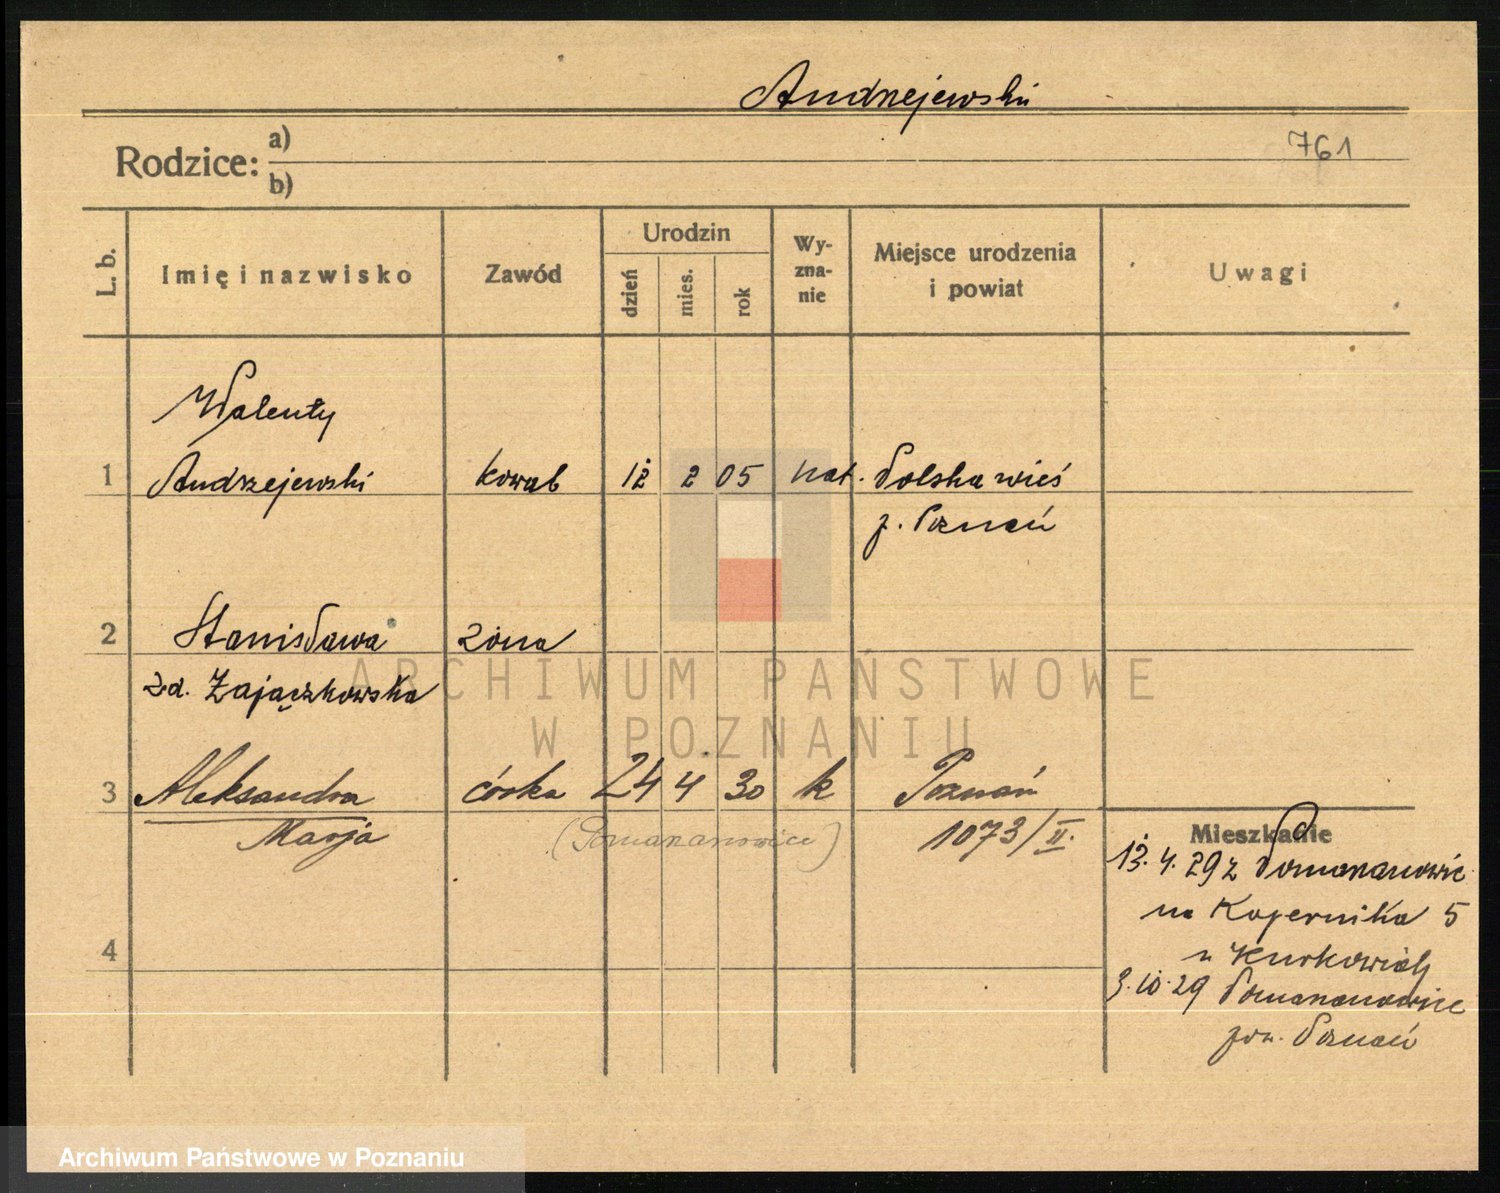 Andrzejewski
761
Rodzice:
a)
b)
L. b.
Imię i nazwisko
Zawód
Urodzin
dzień
mies.
rok
Wy-
zna-
nie
Miejsce urodzenia
i powiat
Uwagi
Walenty
1 Andrzejewski kowal 12 2 05 kat. Polska wieś
p. Poznań
2 Stanisława żona
z d. Zajączkowska
3 Aleksandra córka 24 4 30 k Poznań
Marja
(Pomarzanowice)
1073/II.
Mieszkanie
13. 4. 29 z Pomarzanowic
na Kopernika 5
u Kurkowiak
3. 10. 29 Pomarzanowice
pow. Poznań
4
ARCHIWUM PAŃSTWOWE
W POZNANIU
Archiwum Państwowe w Poznaniu